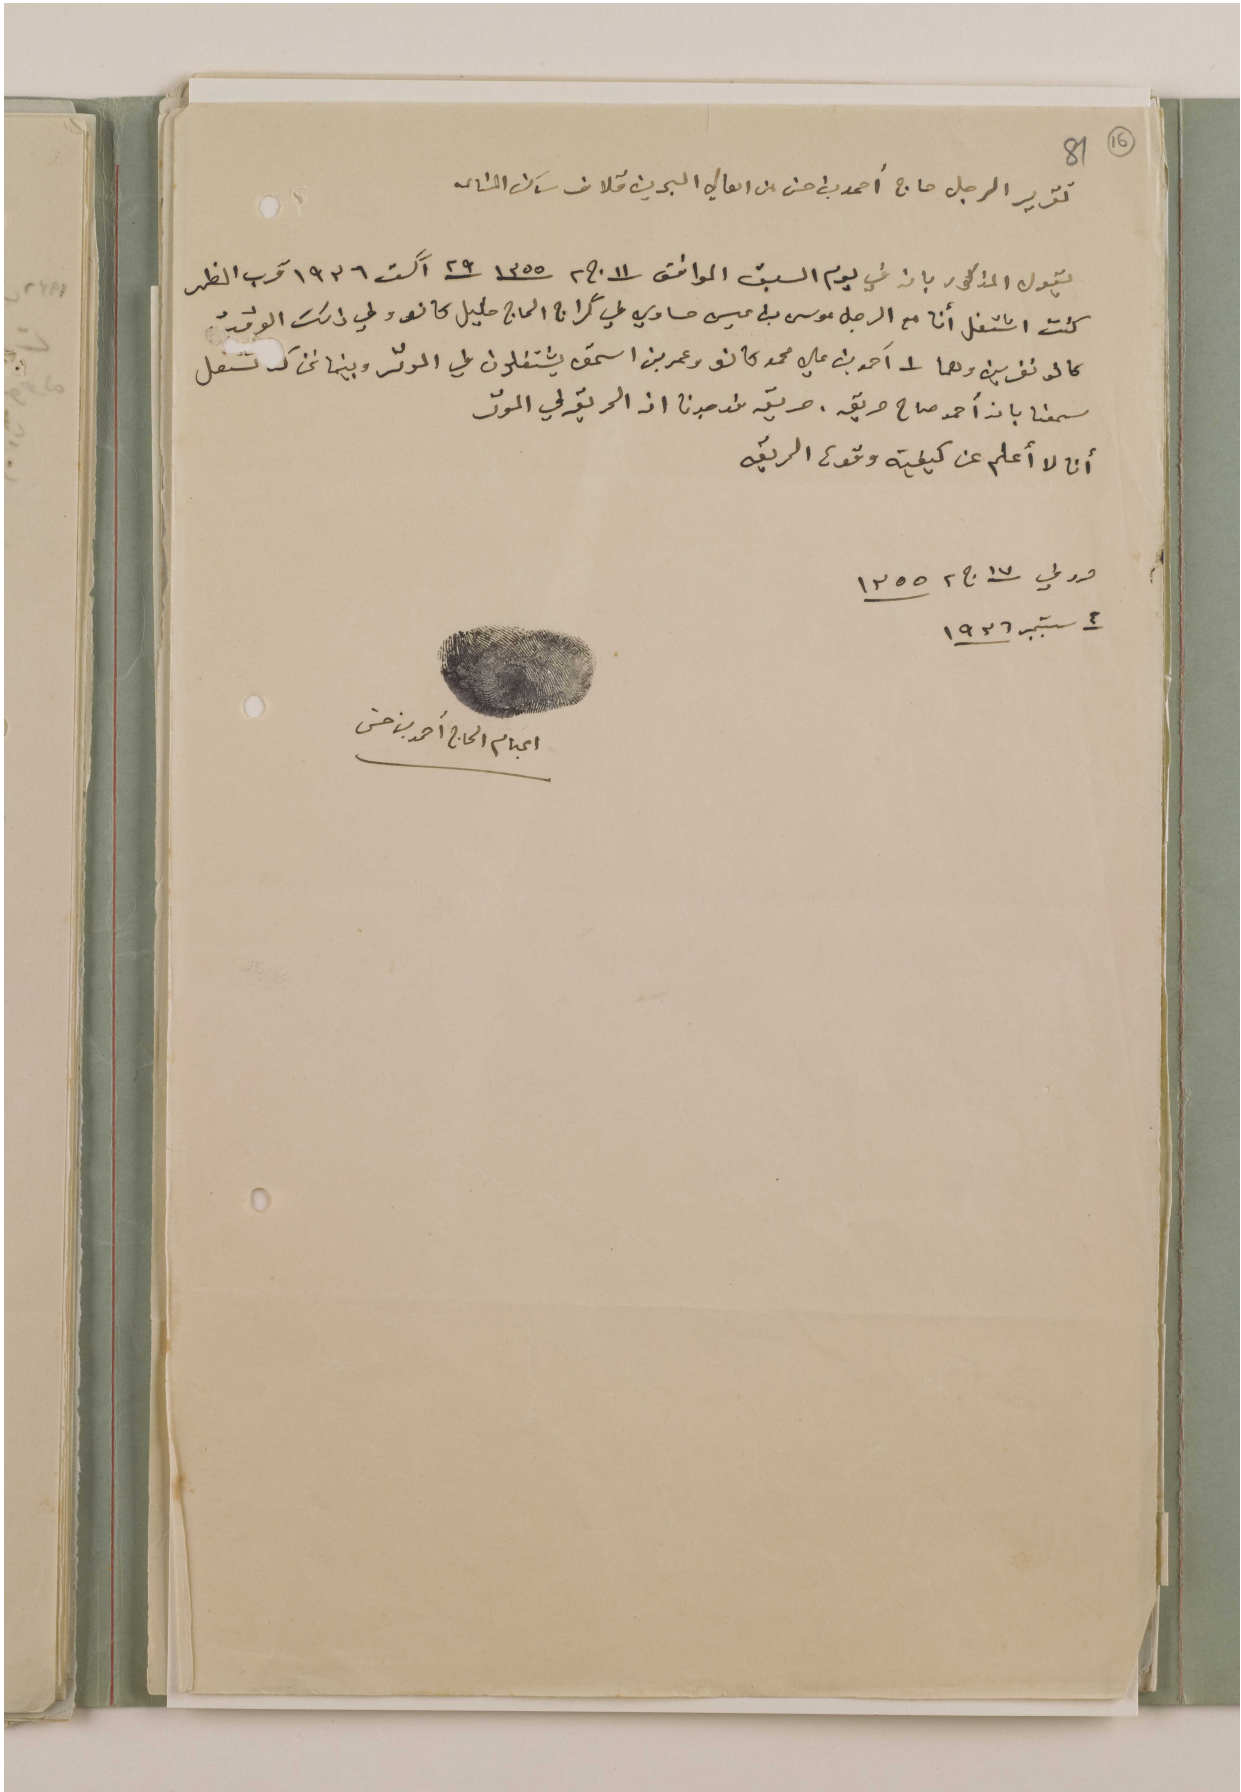 16
81
تقرير الرجل حاج أحمد بن حسن من اهالي البحرين قلاف ساكن المنامه
يقول المذكور بانه في يوم السبت الموافق ١١ ج٢ ١٣٥٥ ٢٩ آگست ١٩٣٦ قرب الظهر
كنت اشتغل أنا مع الرجل موسى بن عيسى حساوي في گراج الحاج خليل كانو وفي ذلك الوقت
كانو نفرين وهما أحمد بن علي محمد كانو وعمر بن اسمق يشتغلون في الموتر وبينما نحن كنا نشتغل
سمعنا بان أحمد صاح حريقه . حريقه فوجدنا ان الحريقه في الموتر
أنا لا أعلم عن كيفية وقوع الحريقه
حرر في ١٧ ج٢ ١٣٥٥
٤ سبتمبر ١٩٣٦
ابهام الحاج أحمد بن حسن